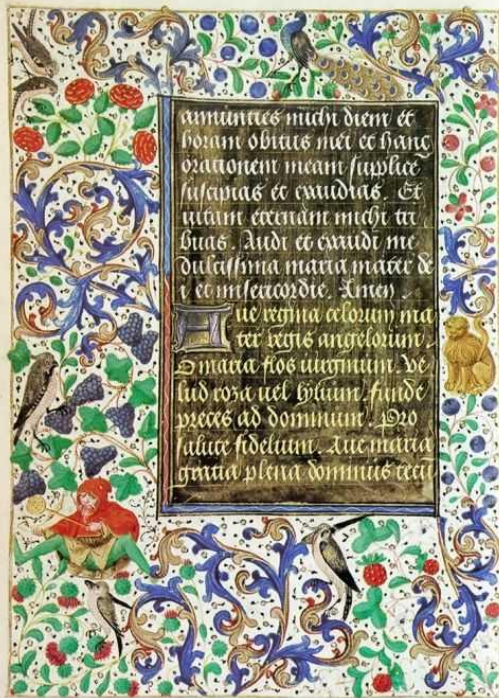 annuncies michi diem et
horam obitus mei et hanc
orationem meam supplice
suscipias et exaudias. Et
uitam eternam michi tri
buas. Audi et exaudi me
dulcissima maria mater de
i et misericordie. Amen.
Aue regina celorum ma
ter regis angelorum.
O maria flos uirginum. ve
lud roza uel lylium. funde
preces ad dominum. Pro
salute fidelium. Aue maria
gratia plena dominus tecu